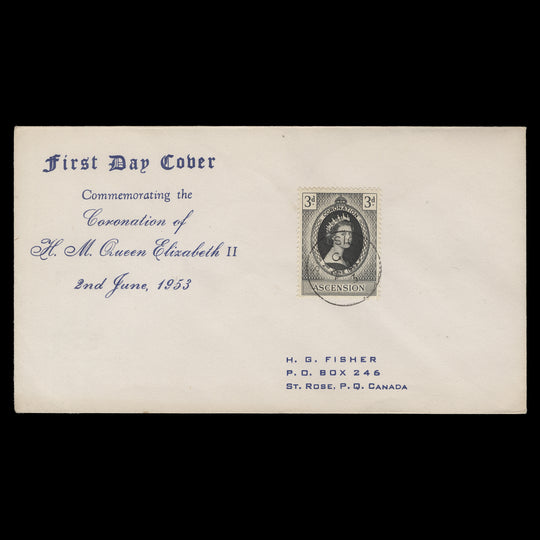 First Day Cover
Commemorating the
Coronation of
H. M. Queen Elizabeth II
2nd June, 1953
3d 3d
CORONATION
ASCENSION
H. G. FISHER
P. O. BOX 246
ST. ROSE, P.Q. CANADA